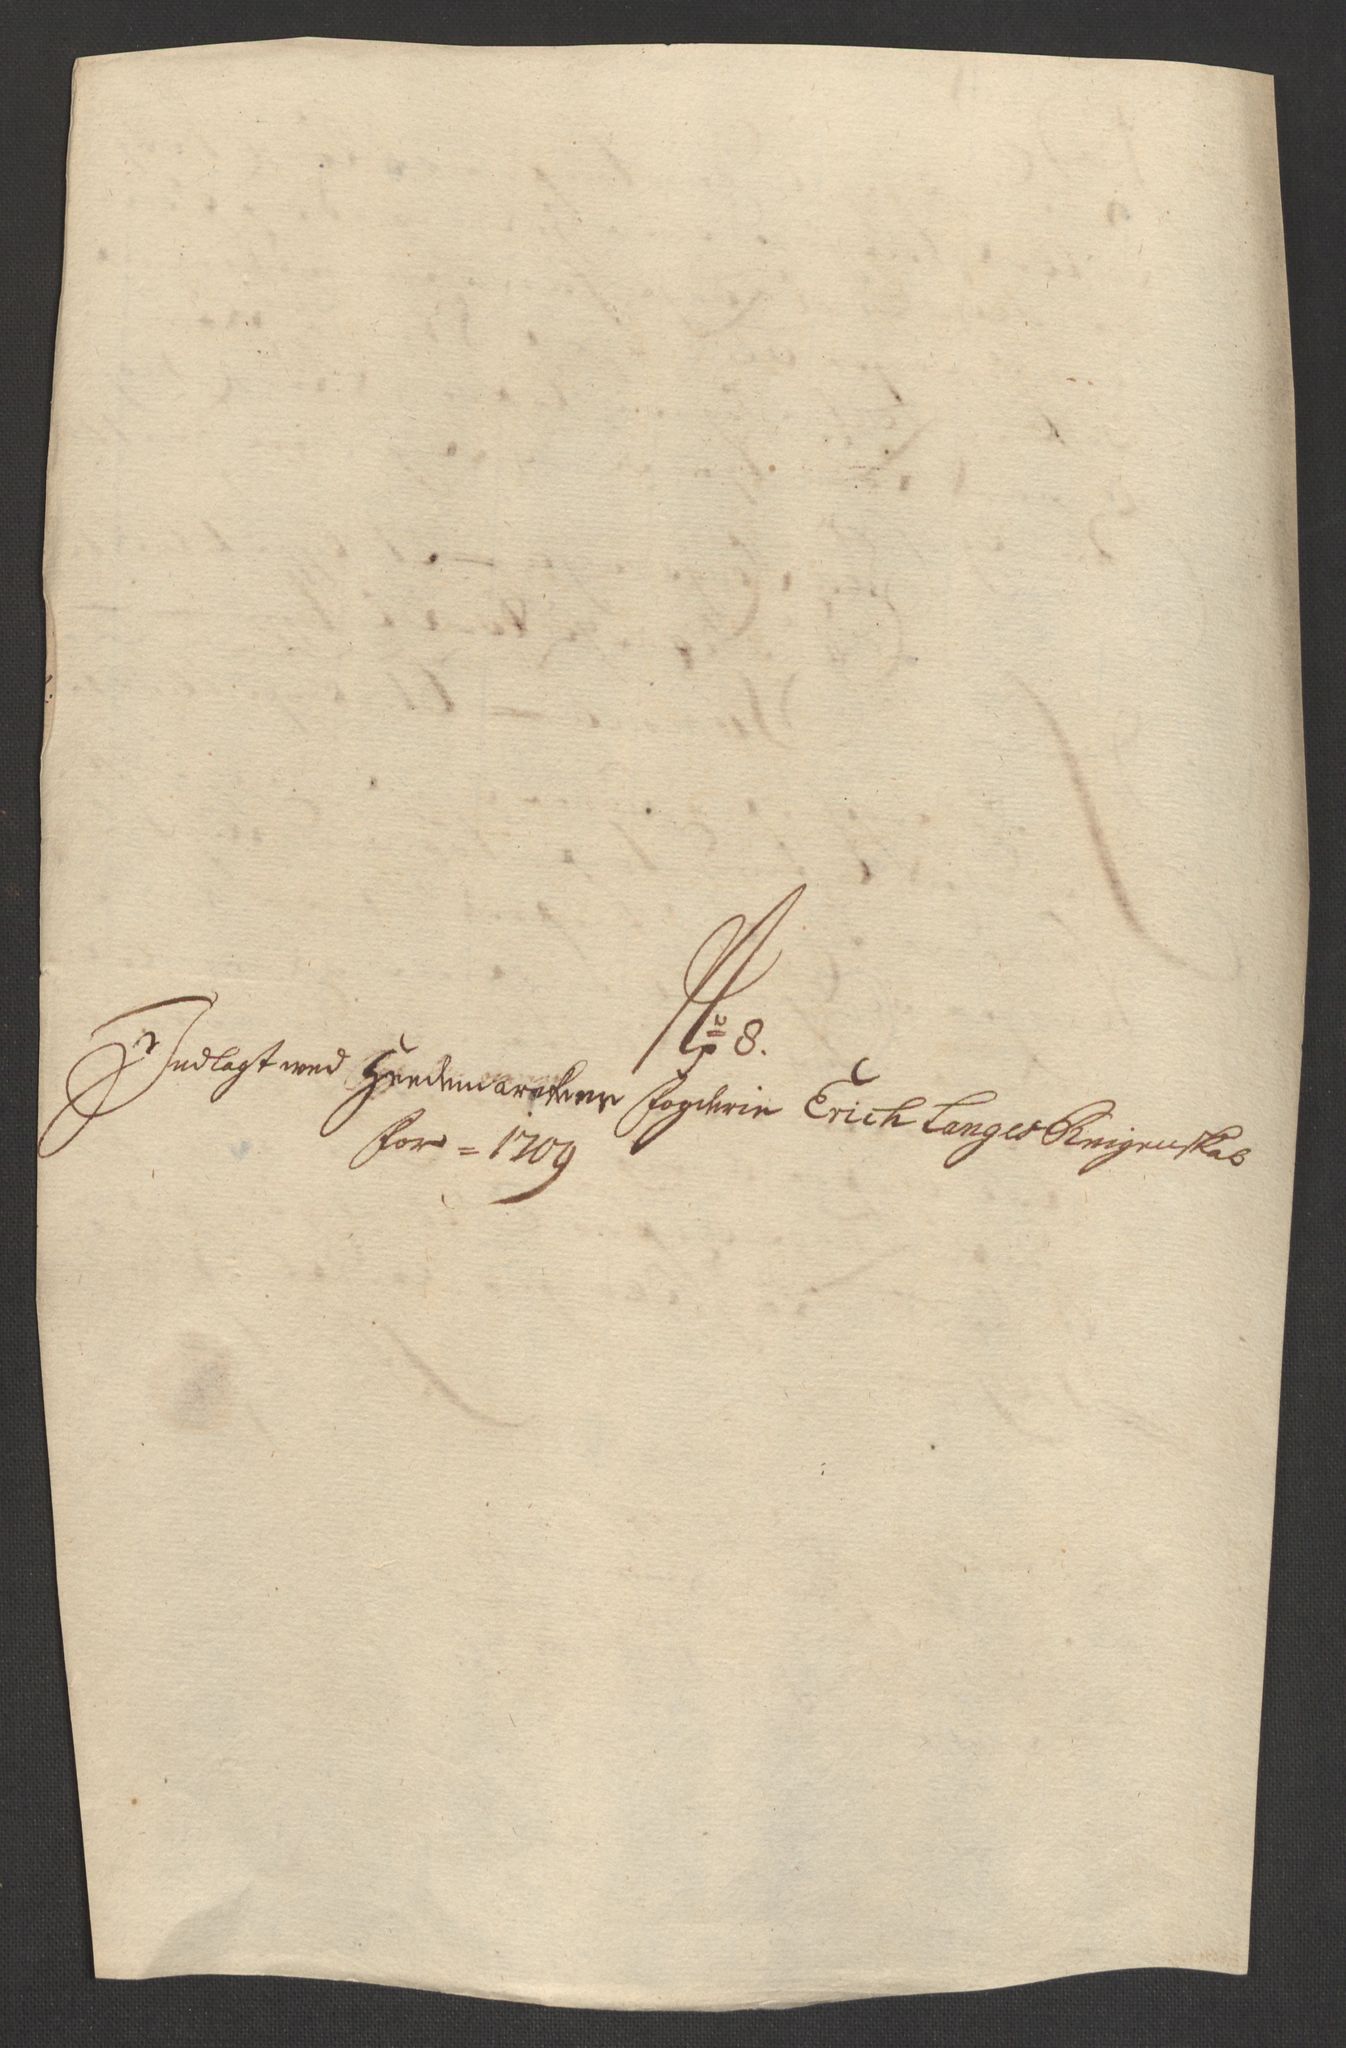 No 8.
Indlagt med Heedemarchens fogderie Erich Langes Reigenskab
for = 1709